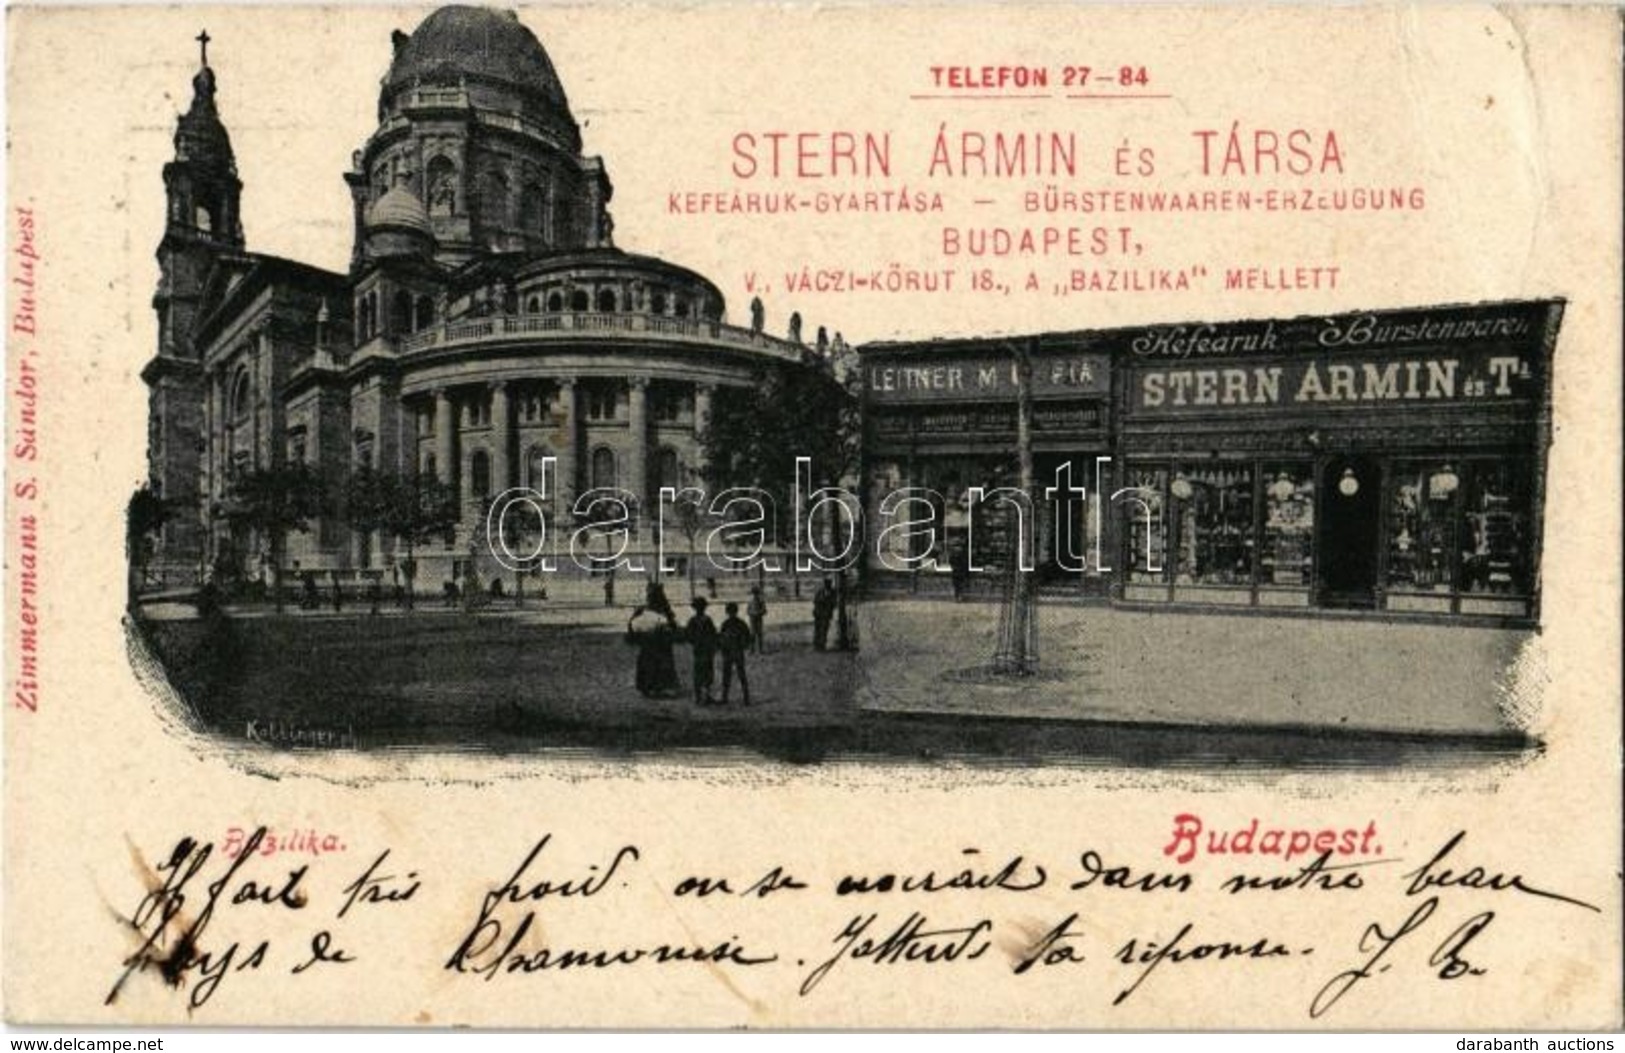 TELEFON 27–84
STERN ÁRMIN ÉS TÁRSA
KEFEÁRUK-GYARTÁSA — BÜRSTENWAAREN-ERZEUGUNG
BUDAPEST,
V., VÁCZI-KÖRUT 18., A „BAZILIKA" MELLETT
Zimmermann S. Sándor, Budapest.
Kefeáruk Bürstenwaren
LEITNER M.
STERN ÁRMIN és Tª
darabanth
Bazilika.
Budapest.
Il fait très froid. on se croirait dans notre beau
pays de Chamonise. J'attends ta réponse. J. B.
www.delcampe.net
darabanth auctions